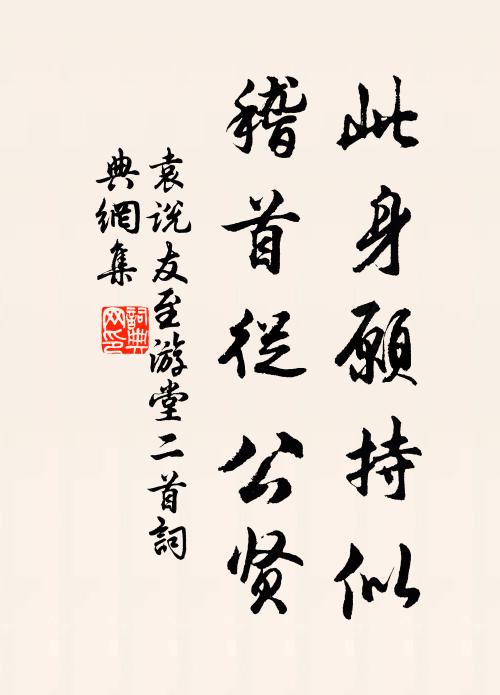 此身願持似
稽首從公贤
袁说友至游堂二首詞
典網集
詞典
网印